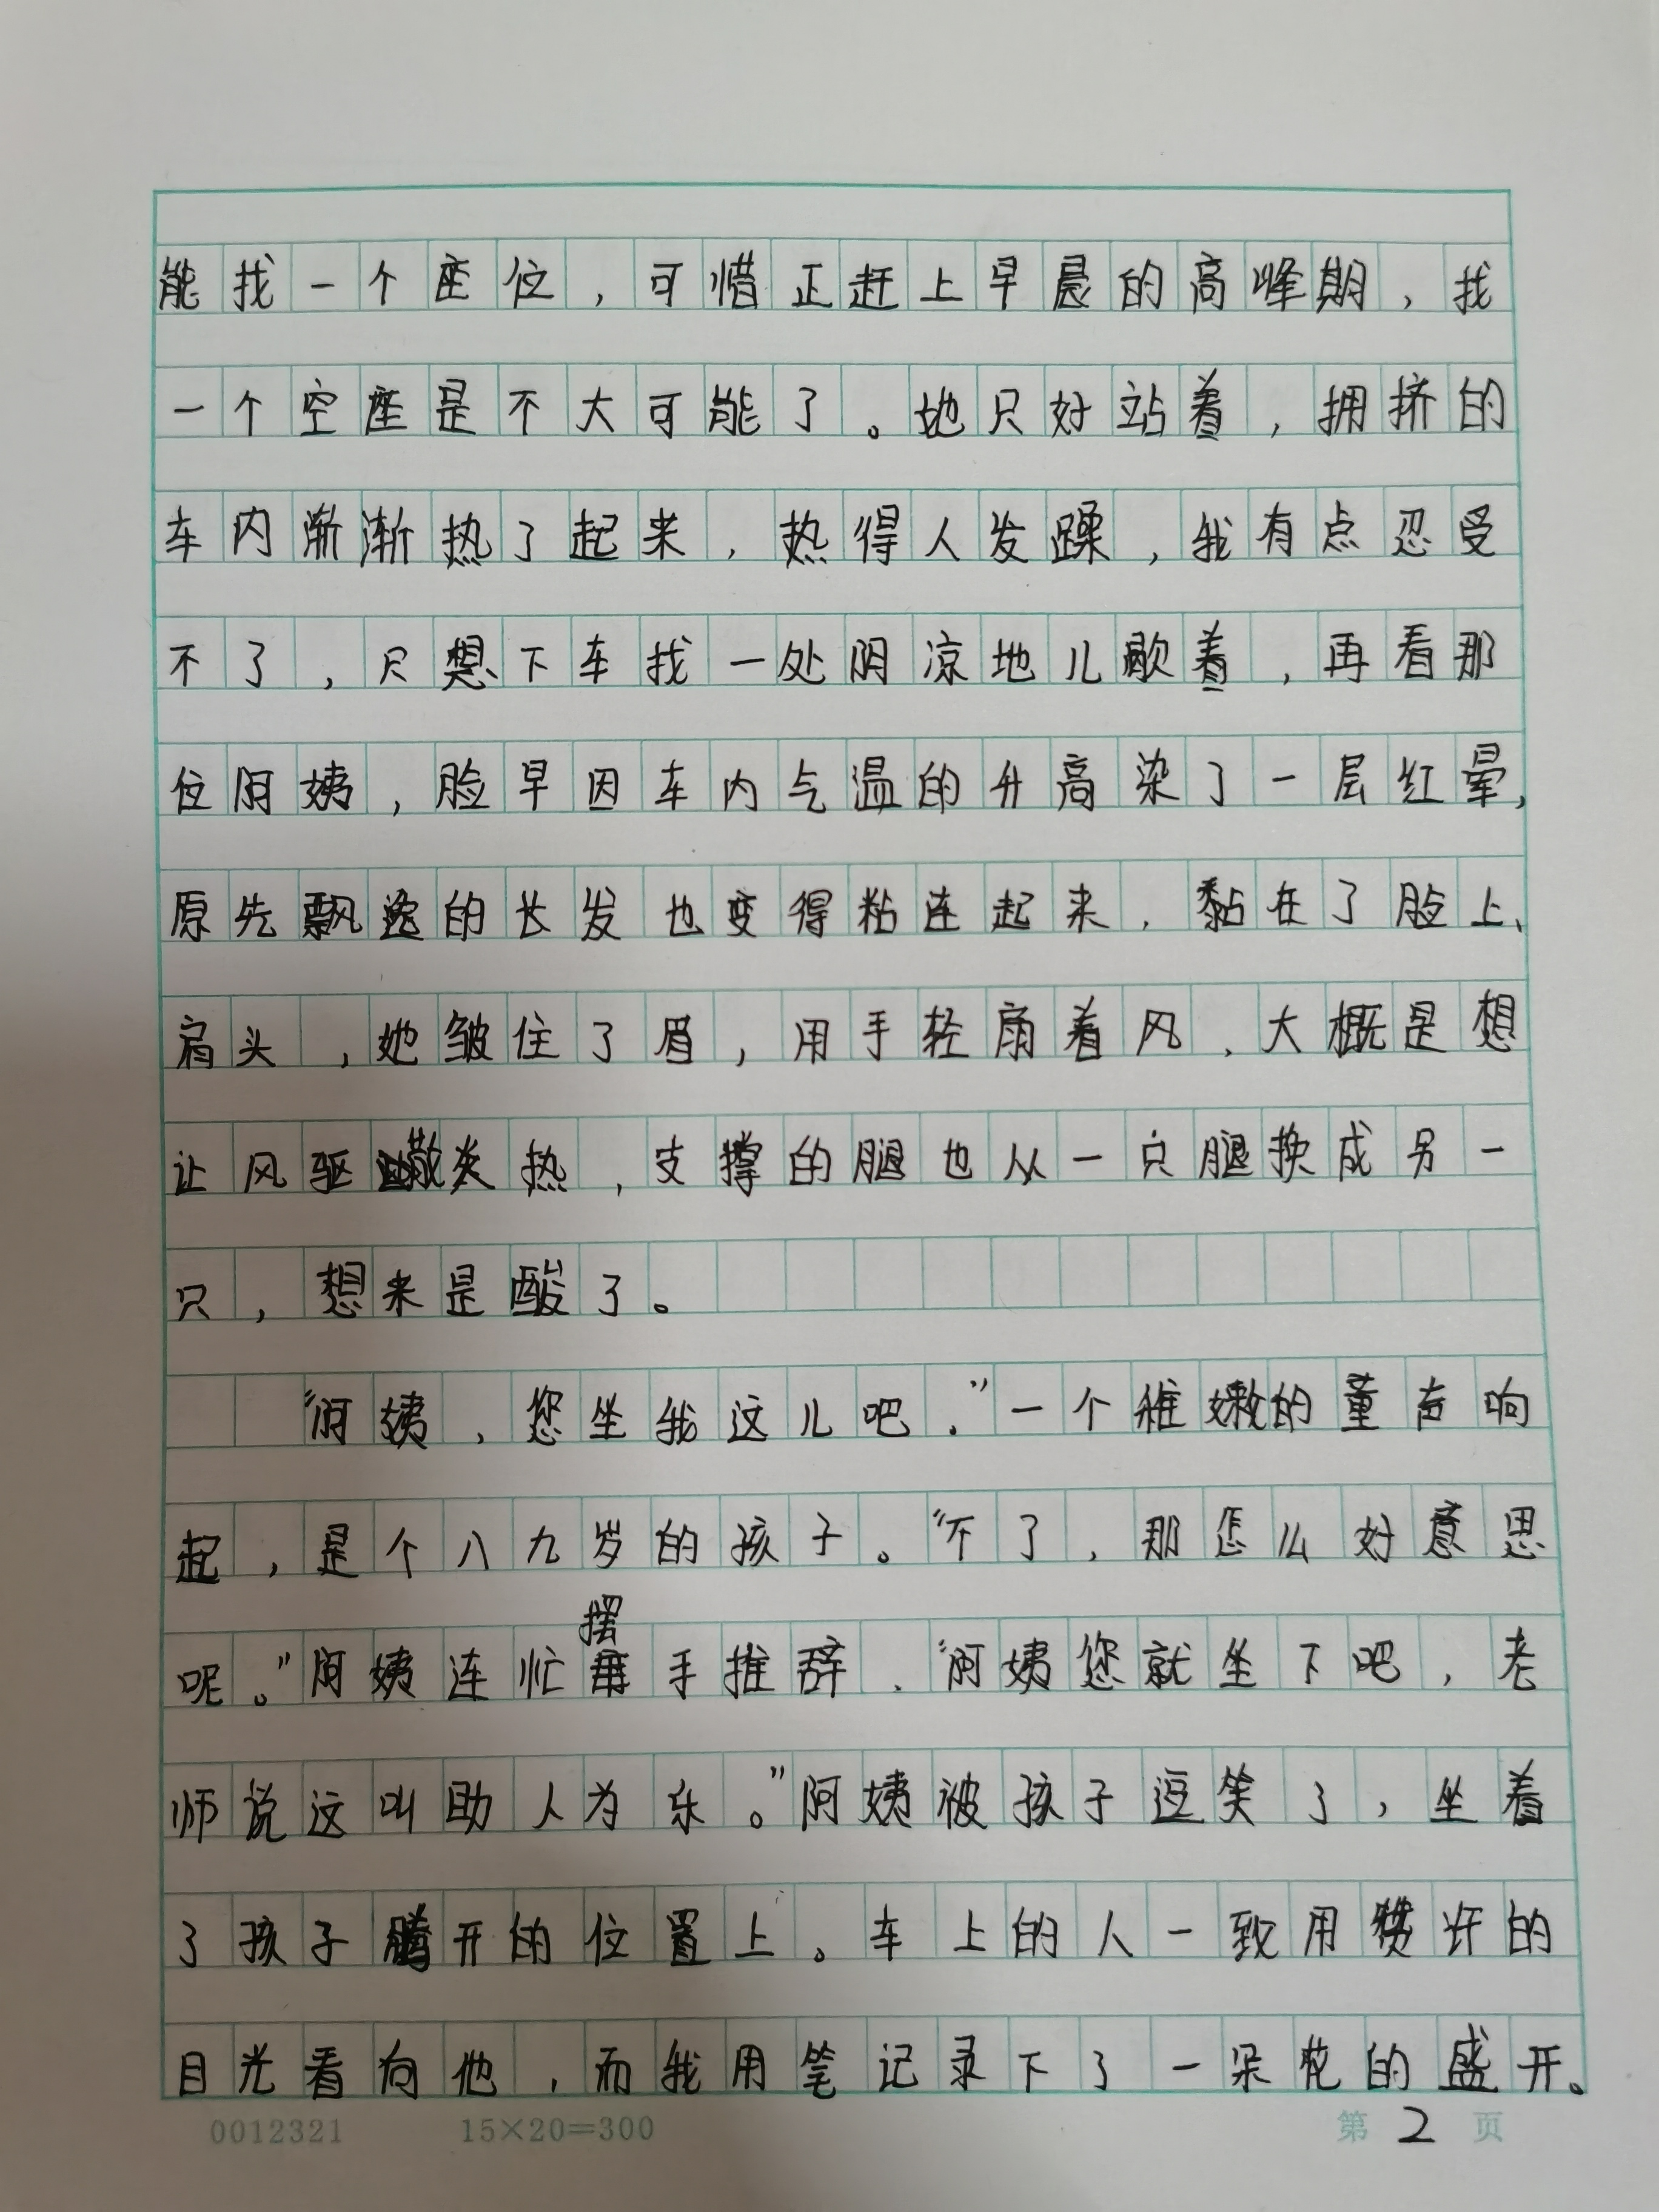 能找一个座位，可惜正赶上早晨的高峰期，找
一个空座是不大可能了。她只好站着，拥挤的
车内渐渐热了起来，热得人发蹂，我有点忍受
不了，只想下车找一处阴凉地儿歇着，再看那
位阿姨，脸早因车内气温的升高染了一层红晕，
原先飘逸的长发也变得粘连起来，黏在了脸上、
肩头，她皱住了眉，用手轻扇着风，大概是想
让风驱散炎热，支撑的腿也从一只腿换成另一
只，想来是酸了。
“阿姨，您坐我这儿吧。”一个稚嫩的童声响
起，是个八九岁的孩子。“不了，那怎么好意思
摆
呢。”阿姨连忙手推辞，“阿姨您就坐下吧，老
师说这叫助人为乐。”阿姨被孩子逗笑了，坐着
了孩子腾开的位置上。车上的人一致用赞许的
目光看向他，而我用笔记录下了一朵花的盛开。
0012321 15×20=300 第 2 页